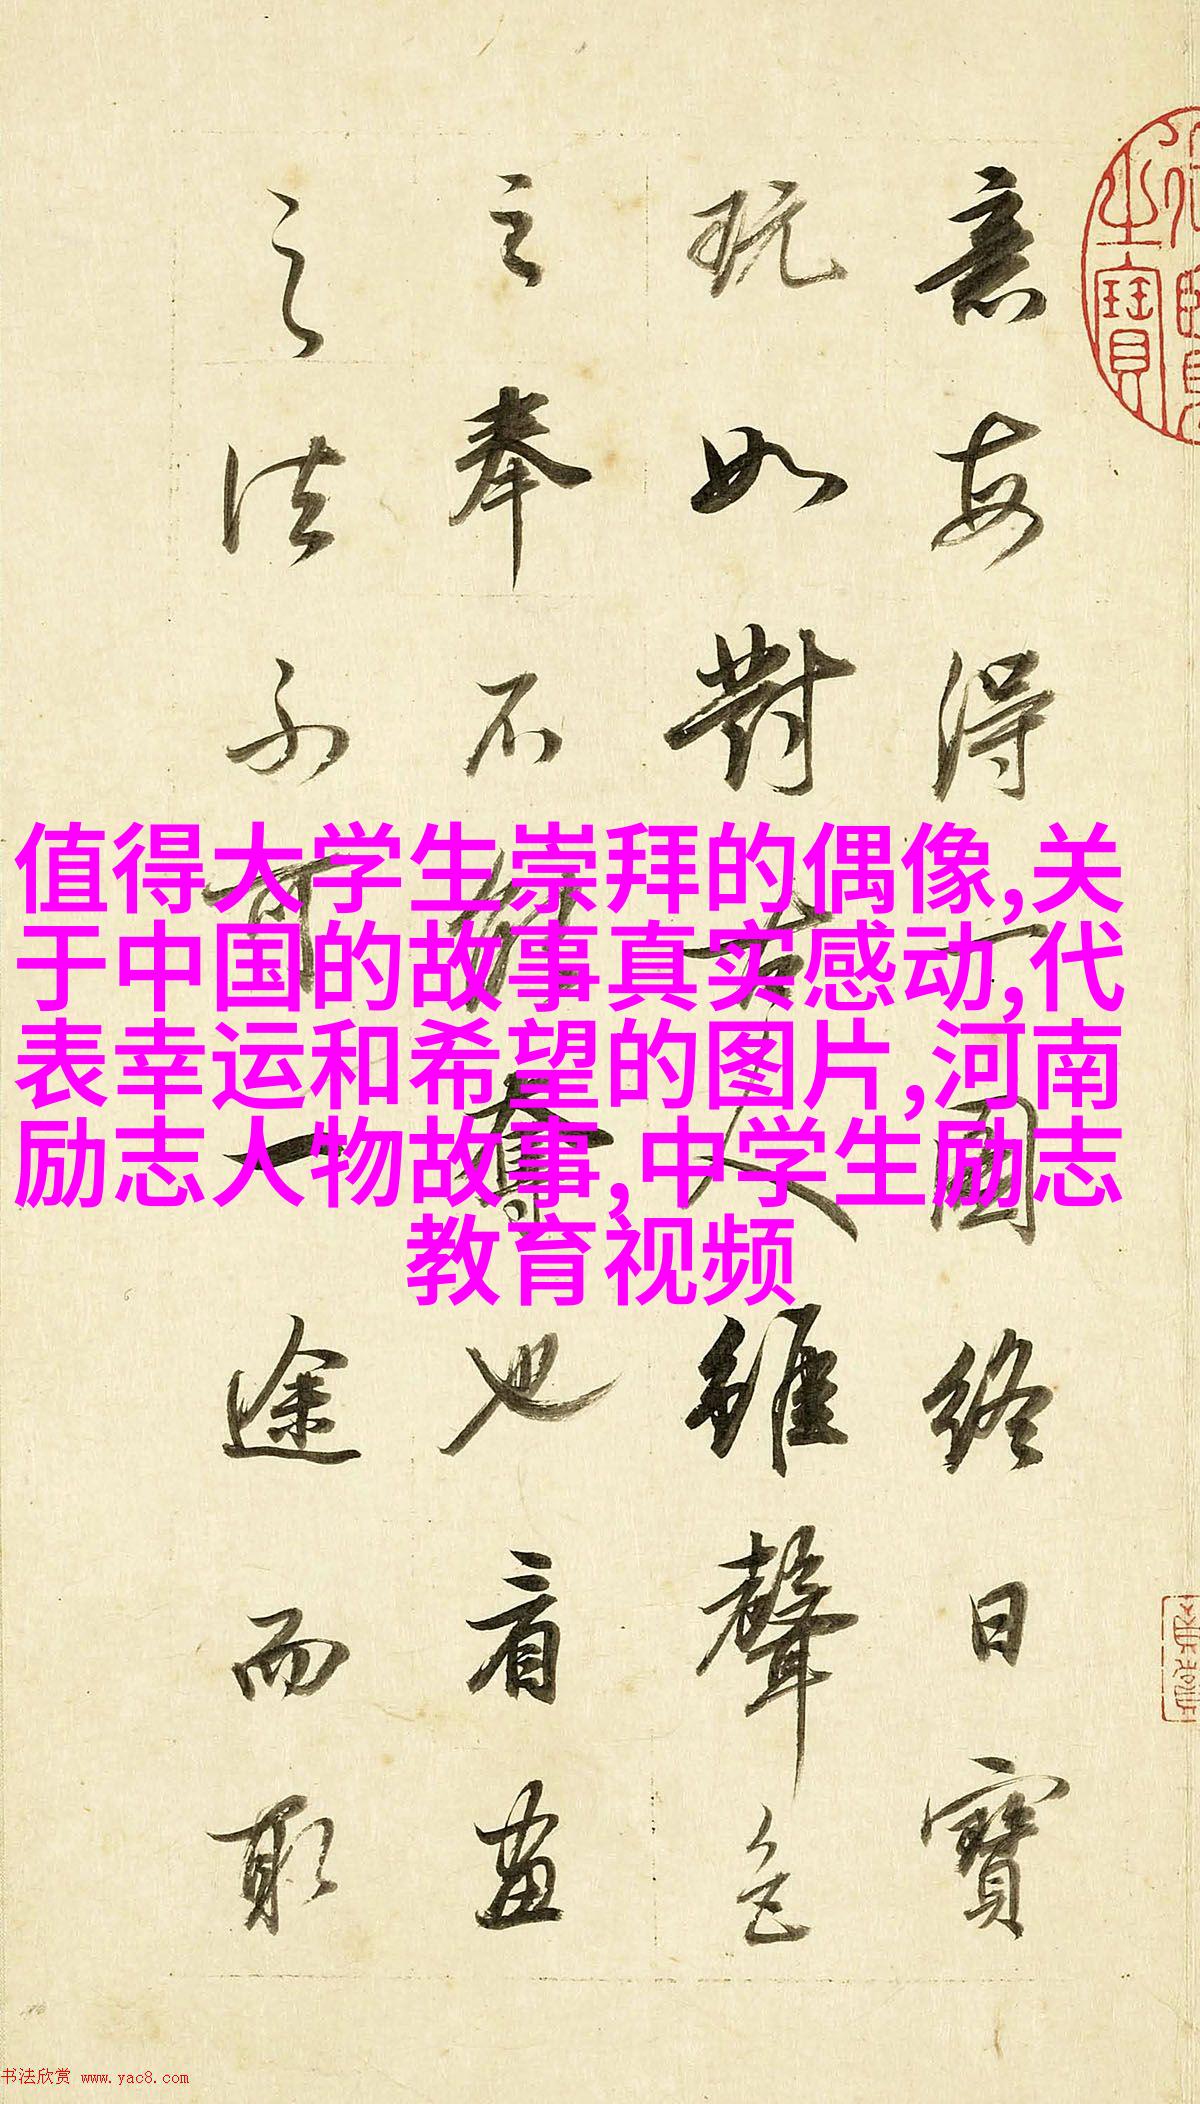 意每得一國終日寶
玩如對古人雖聲色
之奉不能奪也看畫
之法不可一途而取
值得大学生崇拜的偶像,关
于中国的故事真实感动,代
表幸运和希望的图片,河南
励志人物故事,中学生励志
教育视频
书法欣赏 www.yac8.com